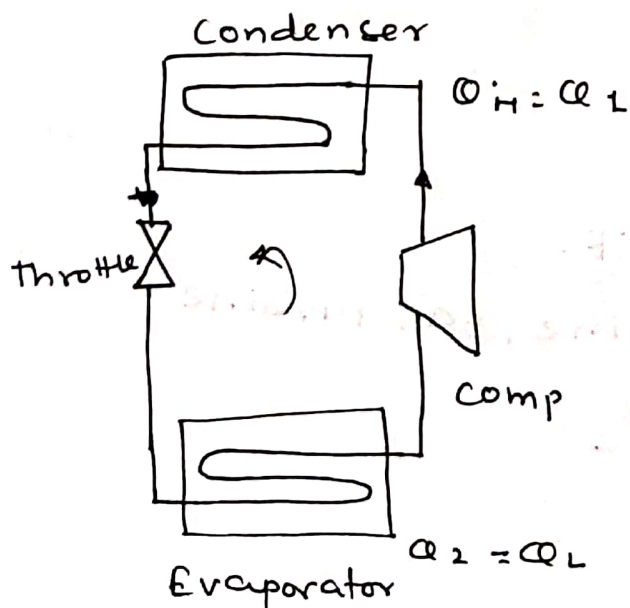 Condenser
Q̇H = Q1
Throttle
Comp
Q2 = QL
Evaporator